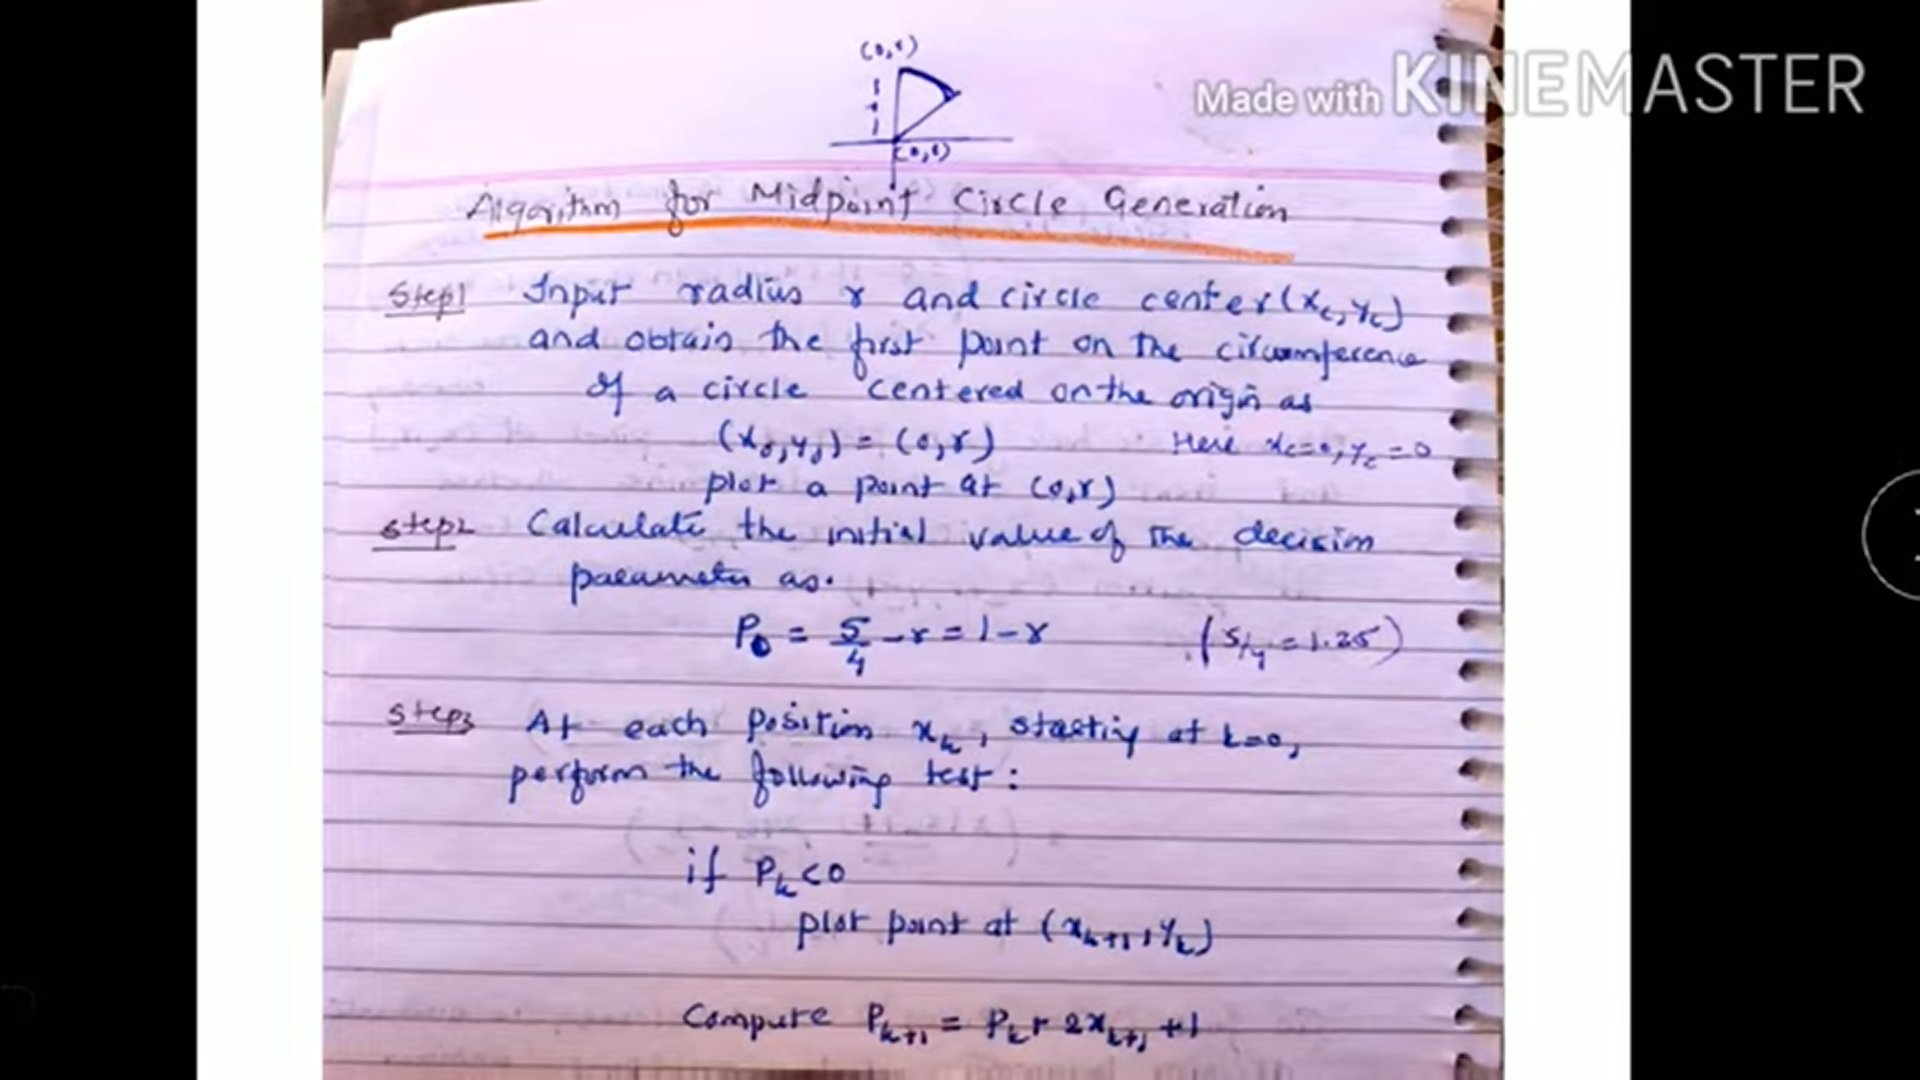 (0,r)
Made with KINEMASTER
r
Algorithm for Midpoint Circle Generation
Step1 Input radius r and circle center (xc, yc)
and obtain the first point on the circumference
of a circle centered on the origin as
(x0, y0) = (0, r) Here xc=0, yc=0
plot a point at (0,r)
Step2 Calculate the initial value of the decision
parameter as.
P0 = 5/4 - r = 1 - r (5/4 = 1.25)
Step3 At each position xk, starting at k=0,
perform the following test :
if Pk<0
plot point at (xk+1, yk)
Compute Pk+1 = Pk + 2xk+1 + 1